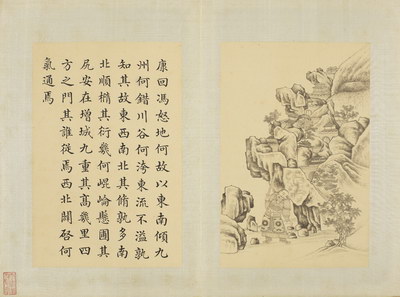 康回馮怒地何故以東南傾九
州何錯川谷何洿東流不溢孰
知其故東西南北其脩孰多南
北順橢其衍幾何崐崘懸圃其
凥安在增城九重其高幾里四
方之門其誰從焉西北闢啓何
氣通焉